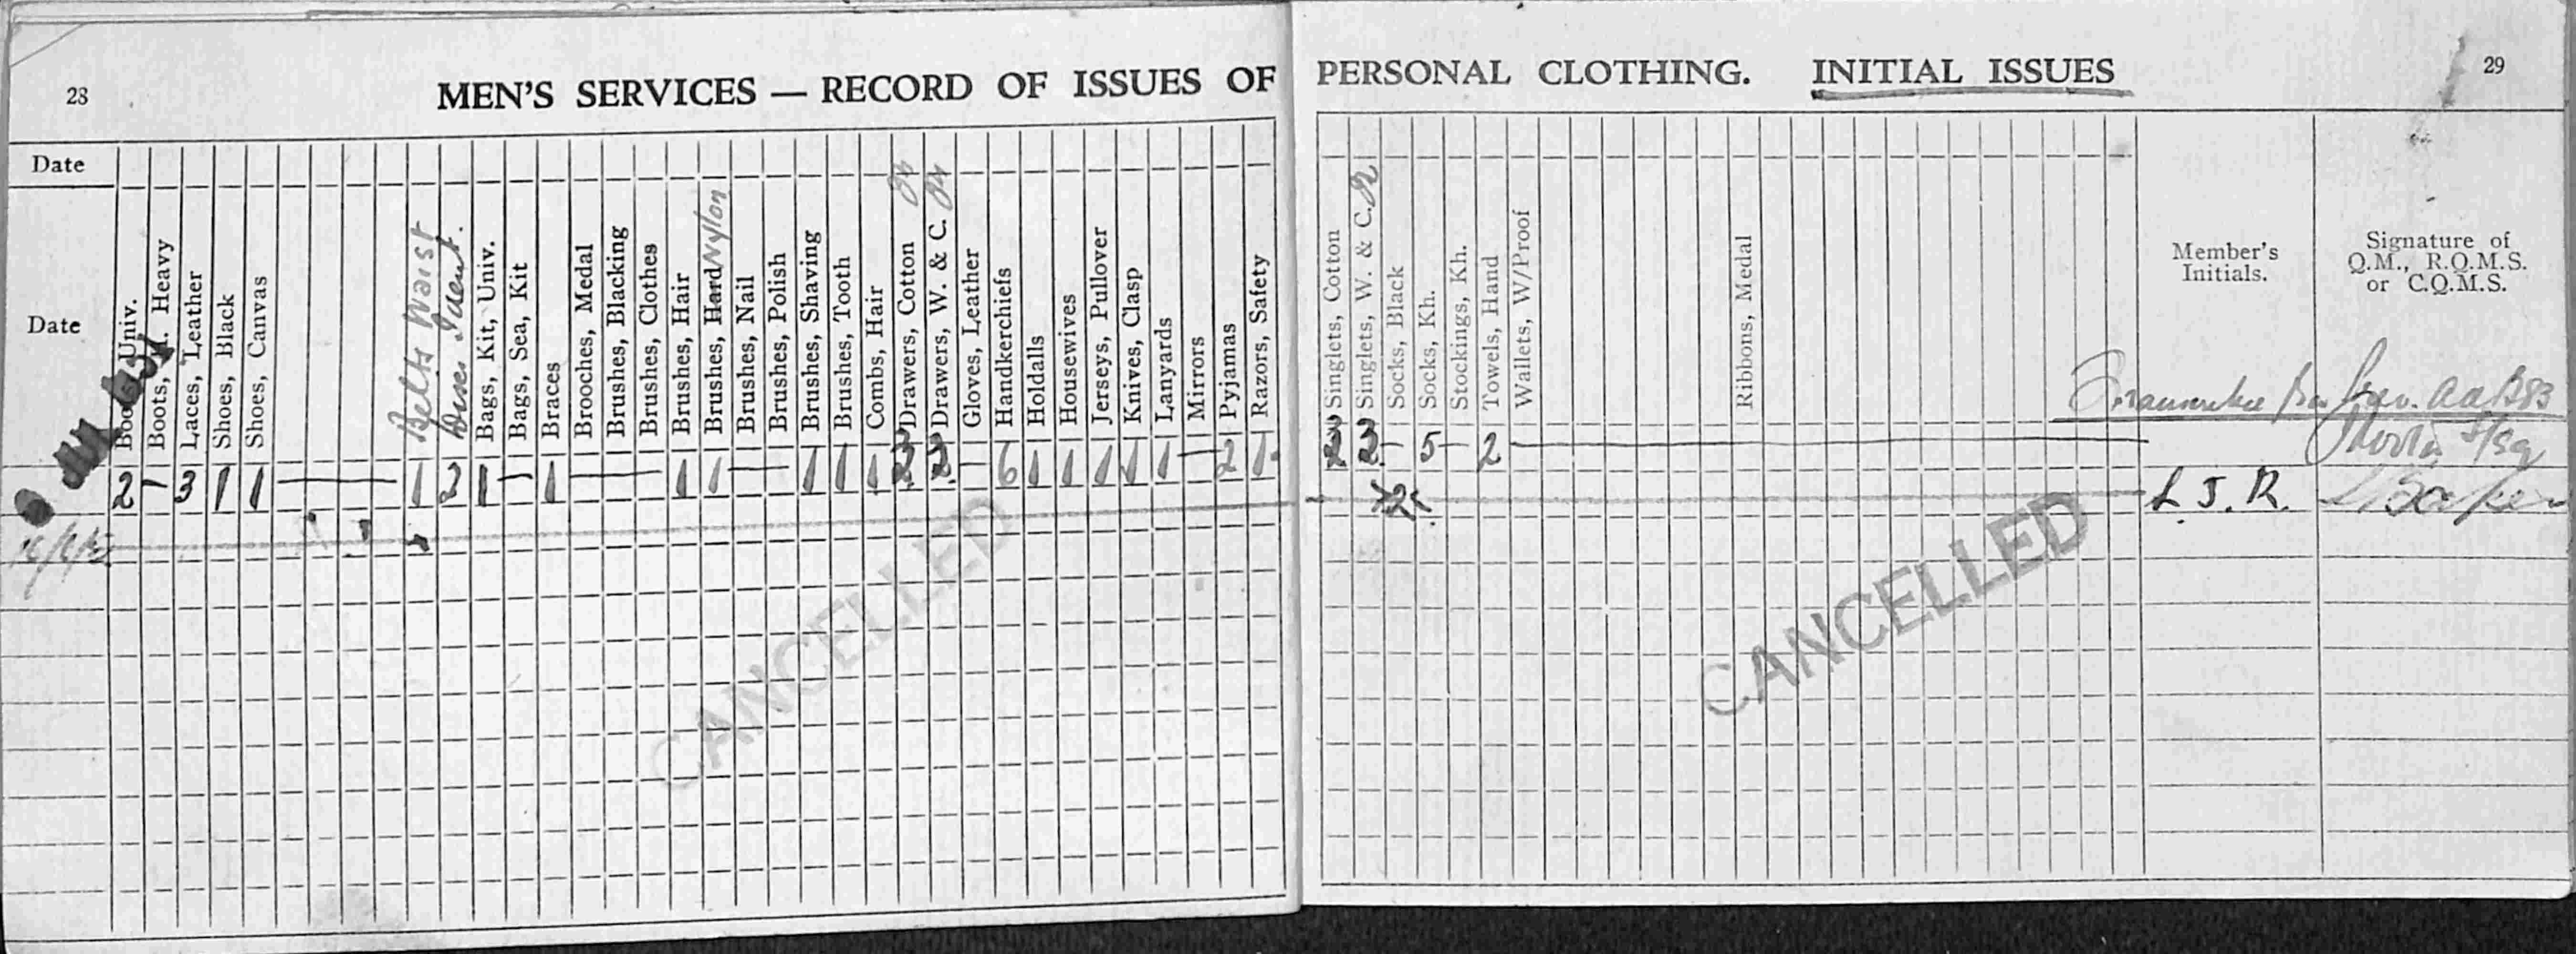 28
MEN'S SERVICES — RECORD OF ISSUES OF PERSONAL CLOTHING. INITIAL ISSUES
29
Date
Date
Boots, Univ.
Boots, Heavy
Laces, Leather
Shoes, Black
Shoes, Canvas
Belts Waist
Discs Ident.
Bags, Kit, Univ.
Bags, Sea, Kit
Braces
Brooches, Medal
Brushes, Blacking
Brushes, Clothes
Brushes, Hair
Brushes, Hard Nylon
Brushes, Nail
Brushes, Polish
Brushes, Shaving
Brushes, Tooth
Combs, Hair
Drawers, Cotton
Drawers, W. & C.
Gloves, Leather
Handkerchiefs
Holdalls
Housewives
Jerseys, Pullover
Knives, Clasp
Lanyards
Mirrors
Pyjamas
Razors, Safety
Singlets, Cotton
Singlets, W. & C.
Socks, Black
Socks, Kh.
Stockings, Kh.
Towels, Hand
Wallets, W/Proof
Ribbons, Medal
Member's
Initials.
Signature of
Q.M., R.Q.M.S.
or C.Q.M.S.
2 — 3 1 1 — 1 2 1 — 1 — 1 1 — 1 1 1 — 6 1 1 1 1 1 — 2 1 — 5 — 2 —
L. J. R.
CANCELLED
CANCELLED